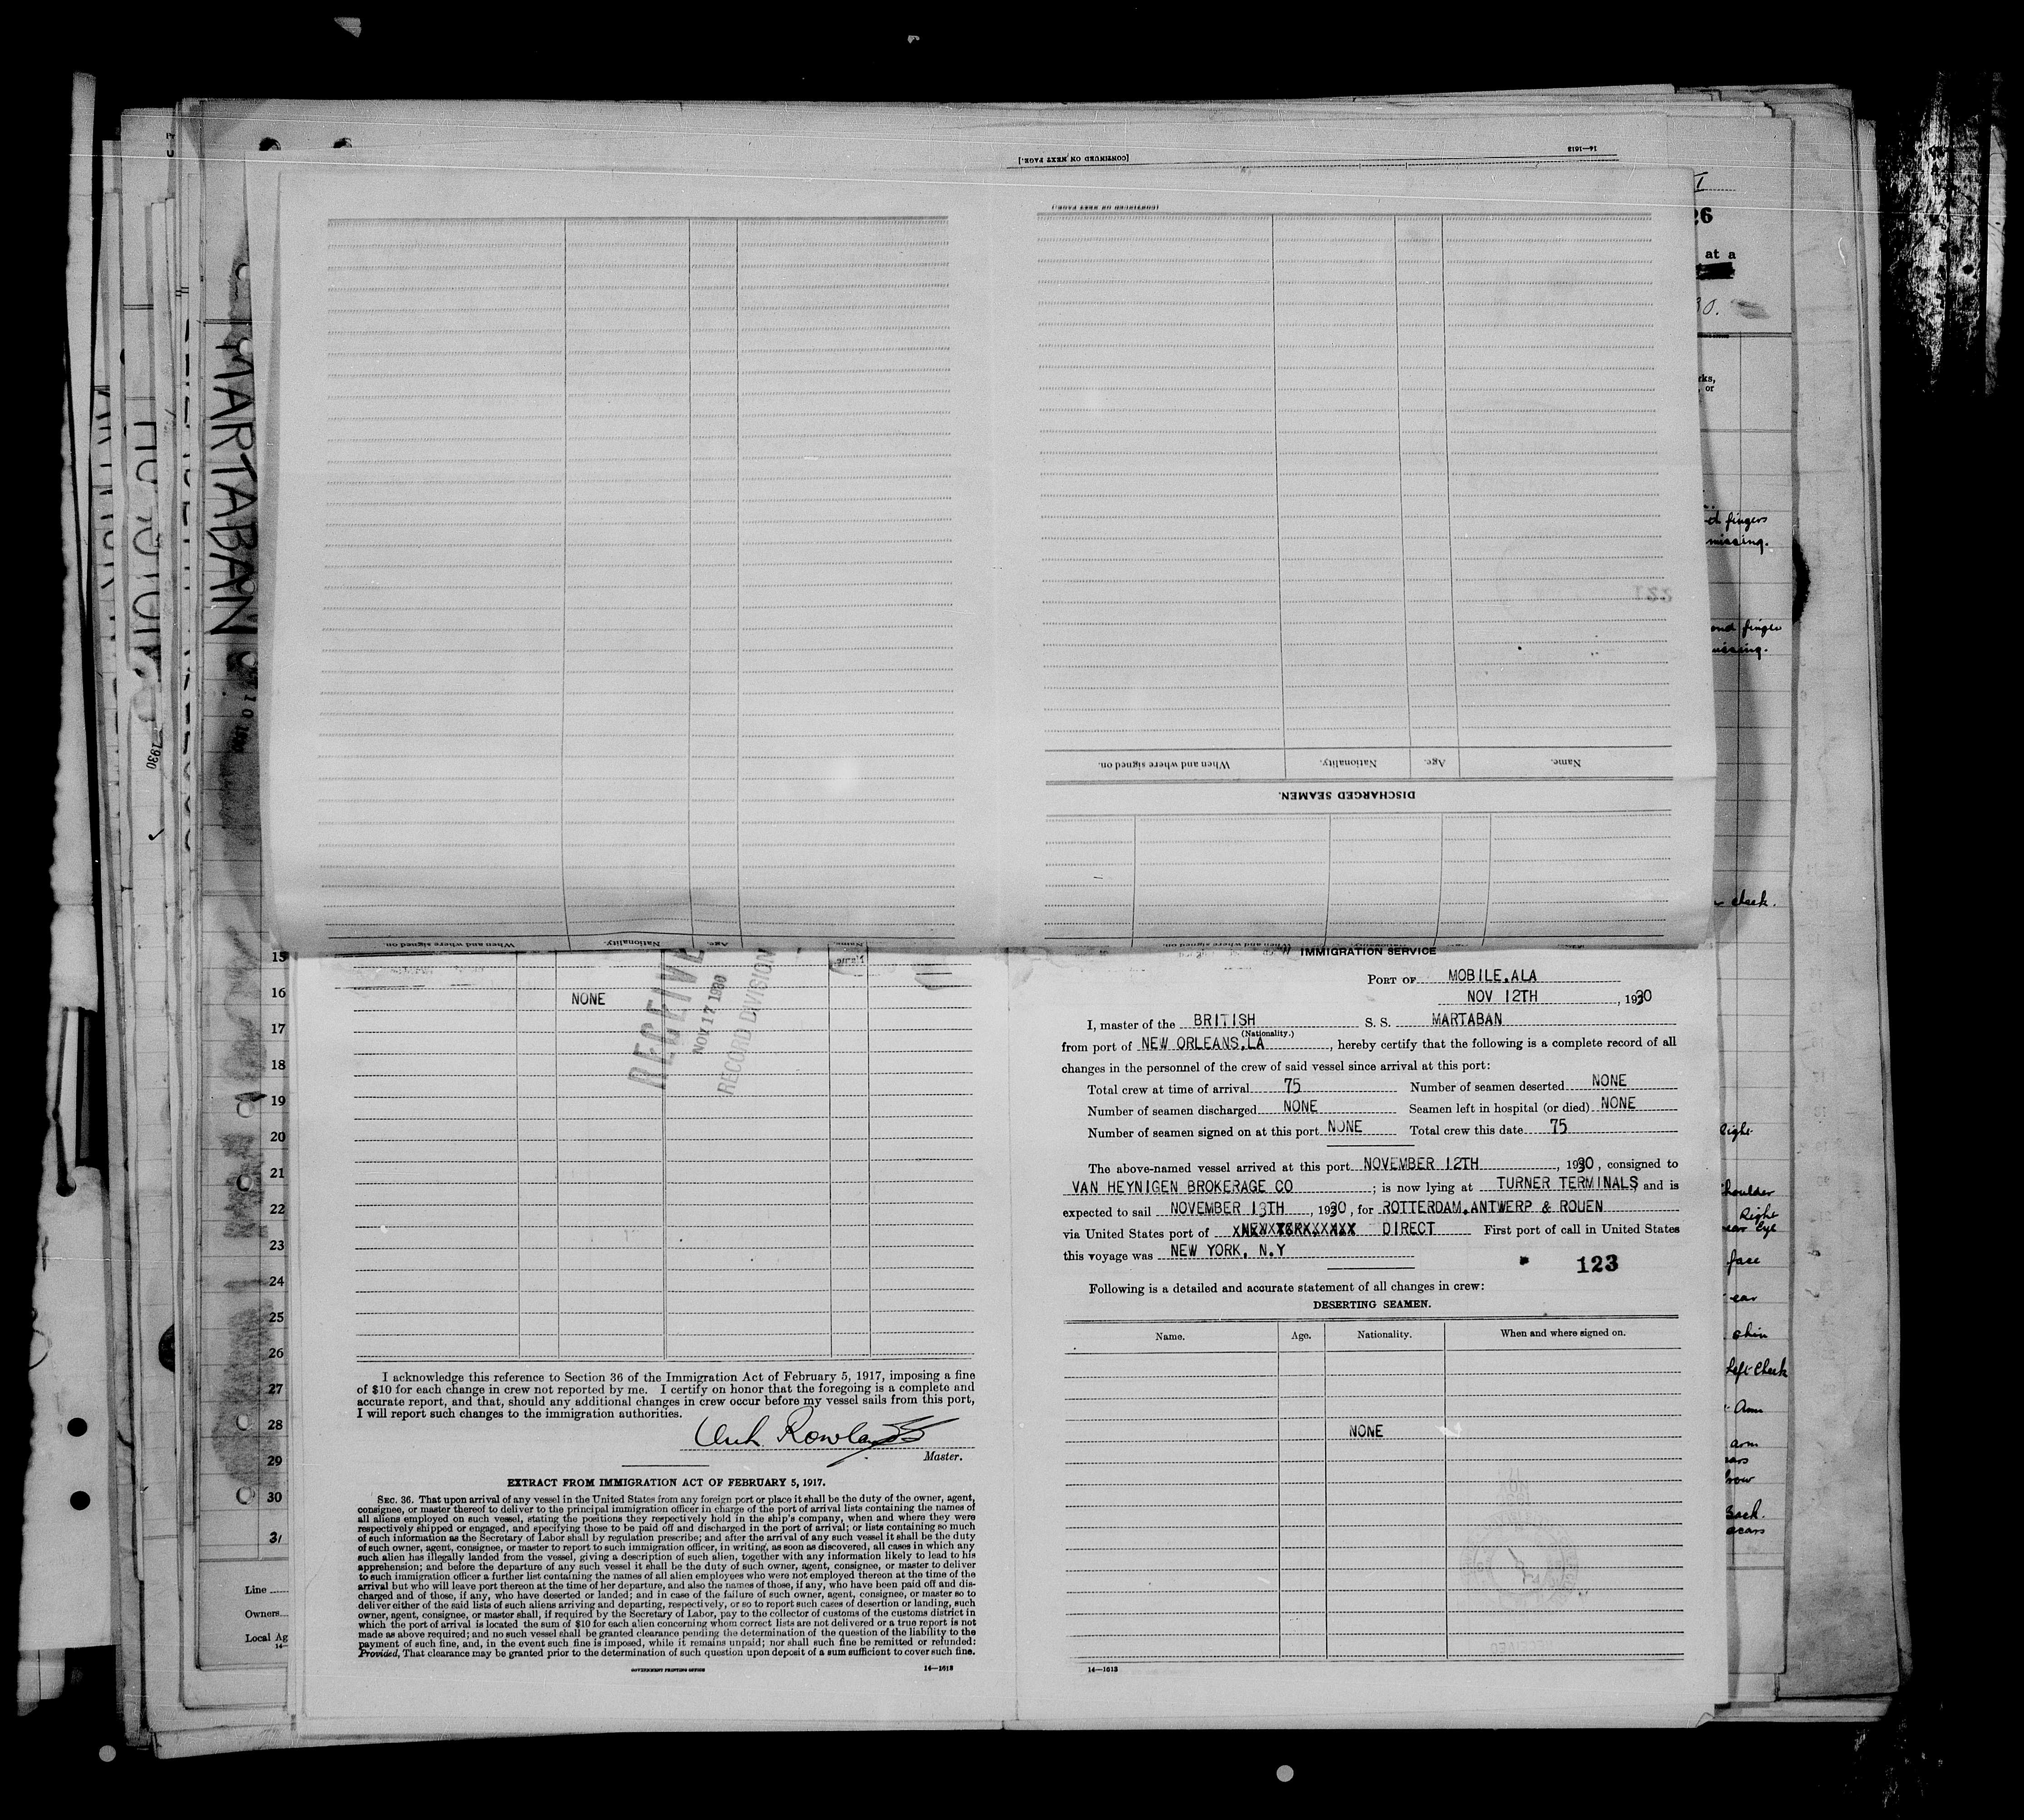 [CONTINUED ON NEXT PAGE.]
14—1613
[CONTINUED ON NEXT PAGE.]
26
at a
30.
rks,
or
MARTABAN
1930
When and where signed on.
Nationality.
Age.
Name.
DISCHARGED SEAMEN.
When and where signed on.
Nationality.
Age.
Name.
d fingers
missing.
and finger
missing.
cheek.
Right
shoulder
Right
near Eye
face
ear
chin
Left Cheek
Arm
arm
ears
brow
Back.
scars
15
16
17
18
19
20
21
22
23
24
25
26
27
28
29
30
31
Line
Owners
Local Ag
14—
NONE
RECEIVE
NOV 17 1930
RECORD DIVISION
I acknowledge this reference to Section 36 of the Immigration Act of February 5, 1917, imposing a fine
of $10 for each change in crew not reported by me. I certify on honor that the foregoing is a complete and
accurate report, and that, should any additional changes in crew occur before my vessel sails from this port,
I will report such changes to the immigration authorities.
Master.
EXTRACT FROM IMMIGRATION ACT OF FEBRUARY 5, 1917.
SEC. 36. That upon arrival of any vessel in the United States from any foreign port or place it shall be the duty of the owner, agent,
consignee, or master thereof to deliver to the principal immigration officer in charge of the port of arrival lists containing the names of
all aliens employed on such vessel, stating the positions they respectively hold in the ship's company, when and where they were
respectively shipped or engaged, and specifying those to be paid off and discharged in the port of arrival; or lists containing so much
of such information as the Secretary of Labor shall by regulation prescribe; and after the arrival of any such vessel it shall be the duty
of such owner, agent, consignee, or master to report to such immigration officer, in writing, as soon as discovered, all cases in which any
such alien has illegally landed from the vessel, giving a description of such alien, together with any information likely to lead to his
apprehension; and before the departure of any such vessel it shall be the duty of such owner, agent, consignee, or master to deliver
to such immigration officer a further list containing the names of all alien employees who were not employed thereon at the time of the
arrival but who will leave port thereon at the time of her departure, and also the names of those, if any, who have been paid off and dis-
charged and of those, if any, who have deserted or landed; and in case of the failure of such owner, agent, consignee, or master so to
deliver either of the said lists of such aliens arriving and departing, respectively, or so to report such cases of desertion or landing, such
owner, agent, consignee, or master shall, if required by the Secretary of Labor, pay to the collector of customs of the customs district in
which the port of arrival is located the sum of $10 for each alien concerning whom correct lists are not delivered or a true report is not
made as above required; and no such vessel shall be granted clearance pending the determination of the question of the liability to the
payment of such fine, and, in the event such fine is imposed, while it remains unpaid; nor shall such fine be remitted or refunded:
Provided, That clearance may be granted prior to the determination of such question upon deposit of a sum sufficient to cover such fine.
GOVERNMENT PRINTING OFFICE
14—1613
IMMIGRATION SERVICE
PORT OF MOBILE.ALA
NOV 12TH, 1930
I, master of the BRITISH S. S. MARTABAN
(Nationality.)
from port of NEW ORLEANS.LA, hereby certify that the following is a complete record of all
changes in the personnel of the crew of said vessel since arrival at this port:
Total crew at time of arrival 75 Number of seamen deserted NONE
Number of seamen discharged NONE Seamen left in hospital (or died) NONE
Number of seamen signed on at this port NONE Total crew this date 75
The above-named vessel arrived at this port NOVEMBER 12TH, 1930, consigned to
VAN HEYNIGEN BROKERAGE CO; is now lying at TURNER TERMINALS and is
expected to sail NOVEMBER 13TH, 1930, for ROTTERDAM.ANTWERP & ROUEN
via United States port of DIRECT First port of call in United States
this voyage was NEW YORK, N.Y
123
Following is a detailed and accurate statement of all changes in crew:
DESERTING SEAMEN.
Name. Age. Nationality. When and where signed on.
NONE
14—1613